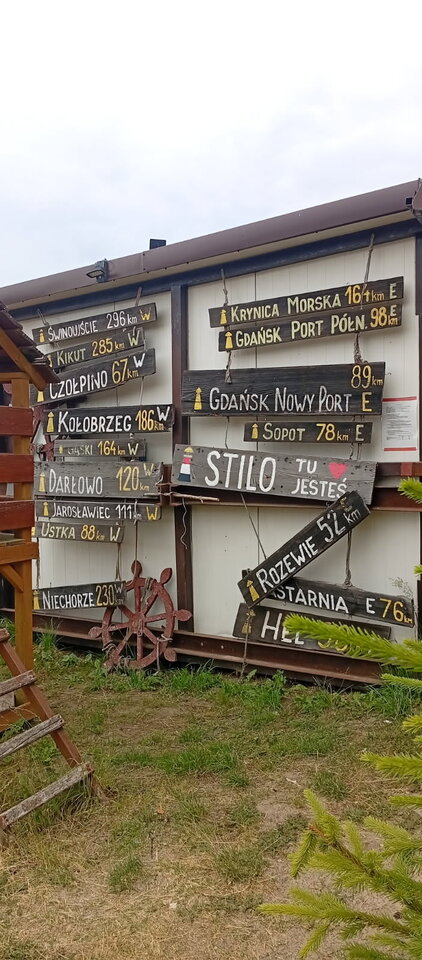 ŚWINOUJŚCIE 296 km W
KIKUT 285 km W
CZOŁPINO 67 km W
KOŁOBRZEG 186 km W
GĄSKI 164 km W
DARŁOWO 120 km W
JAROSŁAWIEC 111 km W
USTKA 88 km W
NIECHORZE 230 W
KRYNICA MORSKA 164 km E
GDAŃSK PORT PÓŁN. 98 km E
89 km
GDAŃSK NOWY PORT E
SOPOT 78 km E
STILO TU ❤ JESTEŚ
ROZEWIE 52 km
JASTARNIA E 76 km
HEL